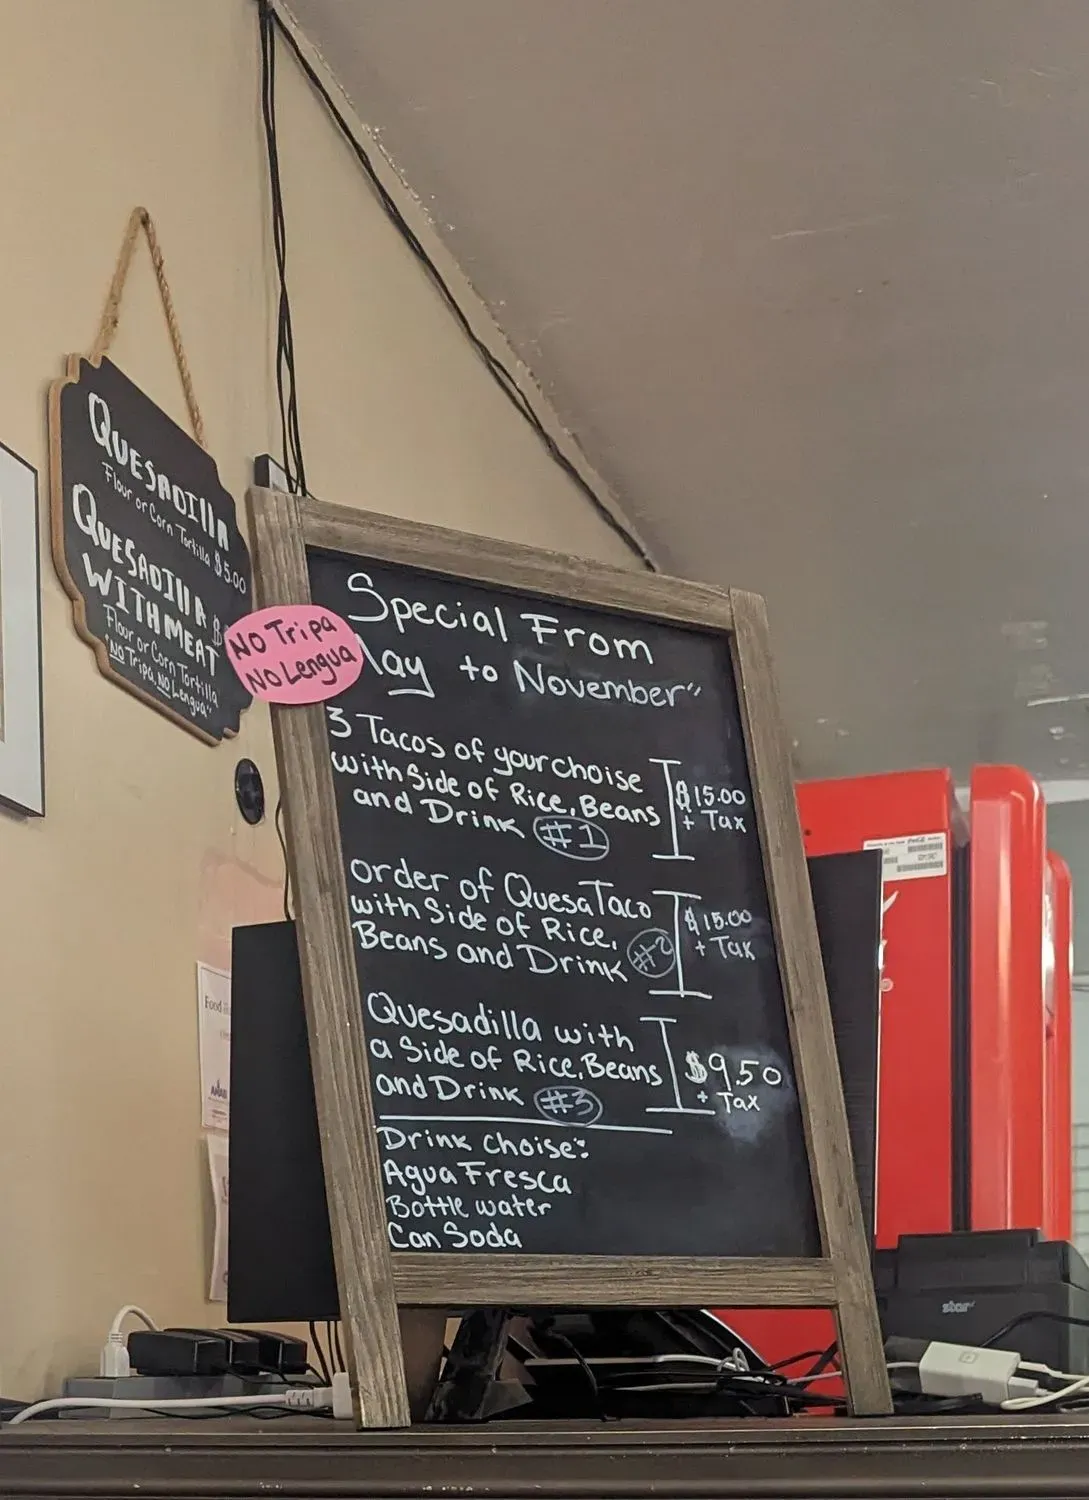 QUESADILLA
Flour or Corn Tortilla $5.00
QUESADILLA $
WITH MEAT
Flour or Corn Tortilla
"No Tripa, No Lengua"
NO Tripa
NO Lengua
Special From
May to November"
3 Tacos of your choise
with Side of Rice, Beans
and Drink #1
$15.00
+ Tax
order of QuesaTaco
with Side of Rice,
Beans and Drink #2
$15.00
+ Tax
Quesadilla with
a Side of Rice, Beans
and Drink #3
$9.50
+ Tax
Drink Choise:
Agua Fresca
Bottle water
Can Soda
Food
star